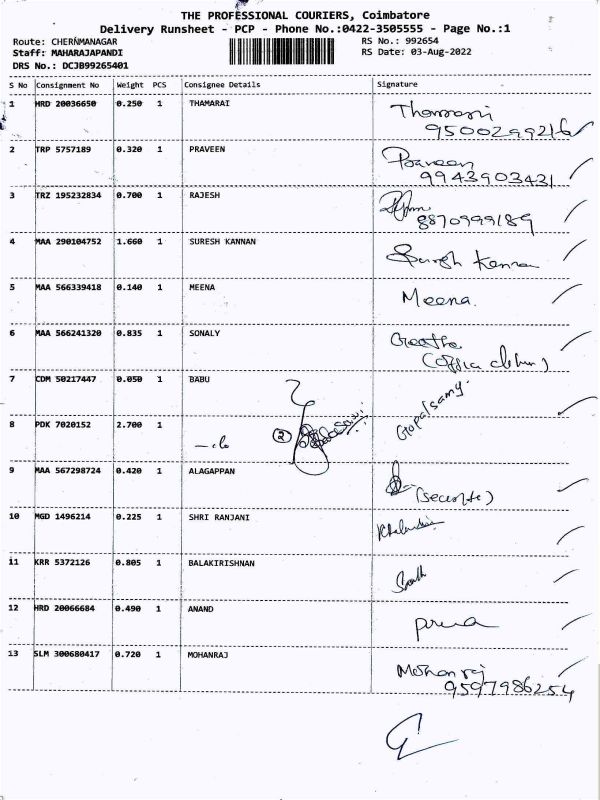 THE PROFESSIONAL COURIERS, Coimbatore
Delivery Runsheet - PCP - Phone No.:0422-3505555 - Page No.:1
Route: CHERNMANAGAR RS No.: 992654
Staff: MAHARAJAPANDI RS Date: 03-Aug-2022
DRS No.: DCJB99265401
S No Consignment No Weight PCS Consignee Details Signature
1 HRD 20036650 0.250 1 THAMARAI
9500299216
2 TRP 5757189 0.320 1 PRAVEEN Praveen
9943903431
3 TRZ 195232834 0.700 1 RAJESH
8870999189
4 MAA 290104752 1.660 1 SURESH KANNAN Suresh Kannan
5 MAA 566339418 0.140 1 MEENA Meena.
6 MAA 566241320 0.835 1 SONALY Geetha
7 CDM 50217447 0.050 1 BABU Gopalsamy.
8 PDK 7020152 2.700 1 2
9 MAA 567298724 0.420 1 ALAGAPPAN
10 MGD 1496214 0.225 1 SHRI RANJANI
11 KRR 5372126 0.805 1 BALAKIRISHNAN
12 HRD 20066684 0.490 1 ANAND
13 SLM 300680417 0.720 1 MOHANRAJ Mohanraj
9597986254